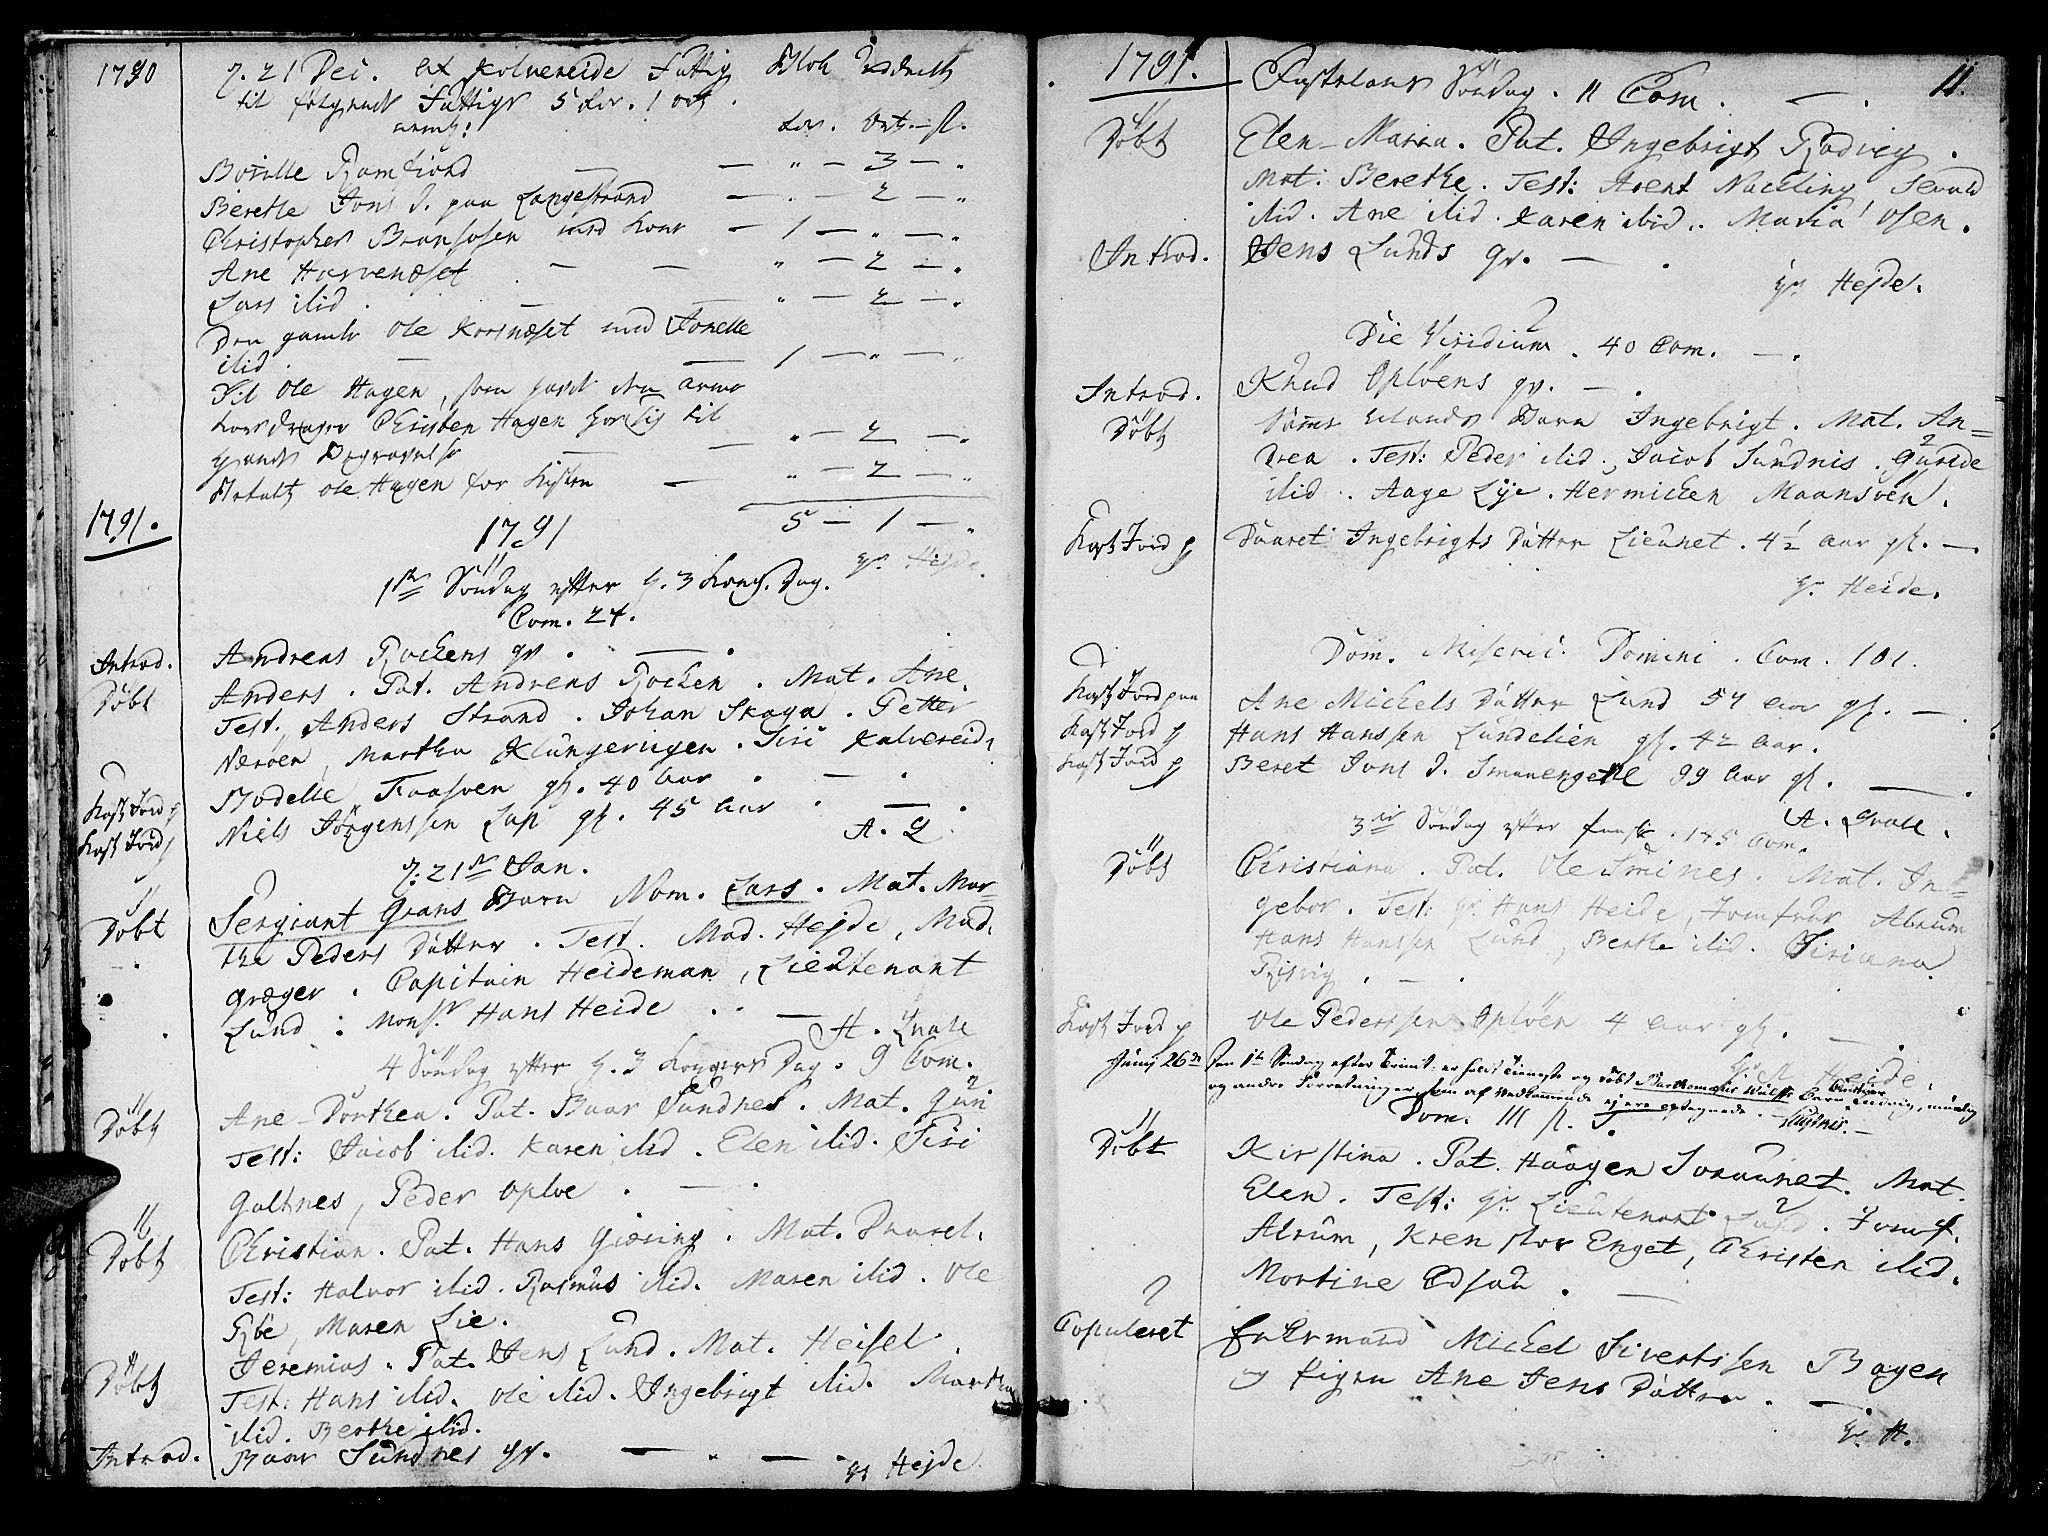 1790
d. 21 Dec. ex Kolvereide Fattig Blok Uddeelt
til følgende Fattige 5 dr. 1 ort.
nemlig: dr. Ort. ſ.
Bozille Ramfiord — — " — 3 — "
Berethe Jons D. paa Langestrand — . — 2 — "
Christopher Bransosen med Kone — 1 — " — "
Ane Horvenæset . — — " — 2 — "
Lars ibid . — — " — 2 — "
Den gamle Ole Korsnæset med Jonelle
ibid . — — 1 — " — "
Til Ole Hagen, som havde den arme
Christen Hagen hos sig til
hands Begravelse — — " — 2 — "
Betalt Ole Hagen for Kisten — " — 2 — "
5 — 1 — "
1791.
1791
Hr. Hejde.
1ste Søndag efter H. 3 Kong. Dag.
Com. 24.
Introd. Andreas Rockens qv. — .
Døbt Anders. Pat. Andreas Rocken. Mat. Ane.
Test. Anders Strand. Johan Skaga. Petter
Nærøen, Martha Klungeringen. Siri Kalvereid.
Kast Jord p Bodelle Faasoen gl. 40 Aar . — .
Kast Jord p Niels Jørgenssen Lap gl. 45 Aar . — .
A. Q.
d. 21de Jan.
Døbt Sergiant Grans Barn Nom. Lars. Mat. Mar=
the Peders Datter. Test. Mad. Hejde, Mad.
Græger. Capitain Heideman, Lieutenant
Lund : Mons.r Hans Heide . . —
H. Qvale
4 Søndag efter H. 3 Kongers Dag. 9 Com.
Døbt Ane-Dorthea. Pat. Baar Sundnes. Mat. Guri
Test: Jacob ibid. Karen ibid. Elen ibid. Siri
Galtnes, Peder Oploe . — .
Døbt Christian. Pat. Hans Giæring. Mat. Maret.
Test: Halvor ibid. Rasmus ibid. Maren ibid. Ole
Røe, Maren Lie.
Døbt Jeremias. Pat. Jens Lund. Mat. Heisel.
Test: Hans ibid. Ole ibid. Ingebrigt ibid. Martha
ibid. Berthe ibid.
Introd. Baar Sundnes qv. — . — .
Hr Hejde.
1791. Fastelavns Søndag. 11 Com. — . 11.
Døbt Elen-Maria. Pat. Ingebrigt Rødvig.
Mat: Berethe. Test: Arent Sevald
ibid. Ane ibid. Karen ibid.. Maria Osen.
Introd. Jens Lunds qv. — .
Hr. Hejde.
Die Viridium. 40 Com. — .
Introd. Knud Opløens qv. — .
Døbt Barn Ingebrigt. Mat. An=
drea. Test: Peder ibid., Jacob Sundnis. Gurede
ibid.. Aage Lye. Hermichen Maansøen.
Kast Jord p Maret Ingebrigts Datter Lieunet. 4½ Aar gl. —
Hr. Heide.
Dom. Miseric: Domini. Com. 101.
Kast Jord paa Ane Michels Datter Lund 54 Aar gl. — .
Kast Jord p Hans Hanssen Lundelien gl. 42 Aar.
Kast Jord p Beret Jons D. Smauengene 99 Aar gl. — .
A. Qvale.
3die Søndag efter Paaske. 145 Com.
Døbt Christiana. Pat. Ole Smines. Mat. In=
gebor. Test: Hr. Hans Heide, Jomfrue Alrum
Hans Hanssen Lund, Berthe ibid. Siriana
Risvig . — .
Kast Jord p Ole Pederssen Opløen 4 Aar gl. — .
Hr. Heide.
Junij 26de Den 1te Søndag efter Trinit: er holdt Tieneste og døbt Bartholomæus Wulfs Barn Ludvig,
og andre Forretninger som af Vedkommende ej ere optegnede.
Dom. III p. T.
Døbt Kirstina. Pat. Haagen Soraunet. Mat.
Elen. Test: Hr. Lieutenant Lund. Jomf.
Alrum, Kren stor Enget, Christen ibid.
Martine Edshau . —
Copuleret Enkemand Michel Sivertssen Bogen
og Pigen Ane Jens Datter . — .
Hr. H.